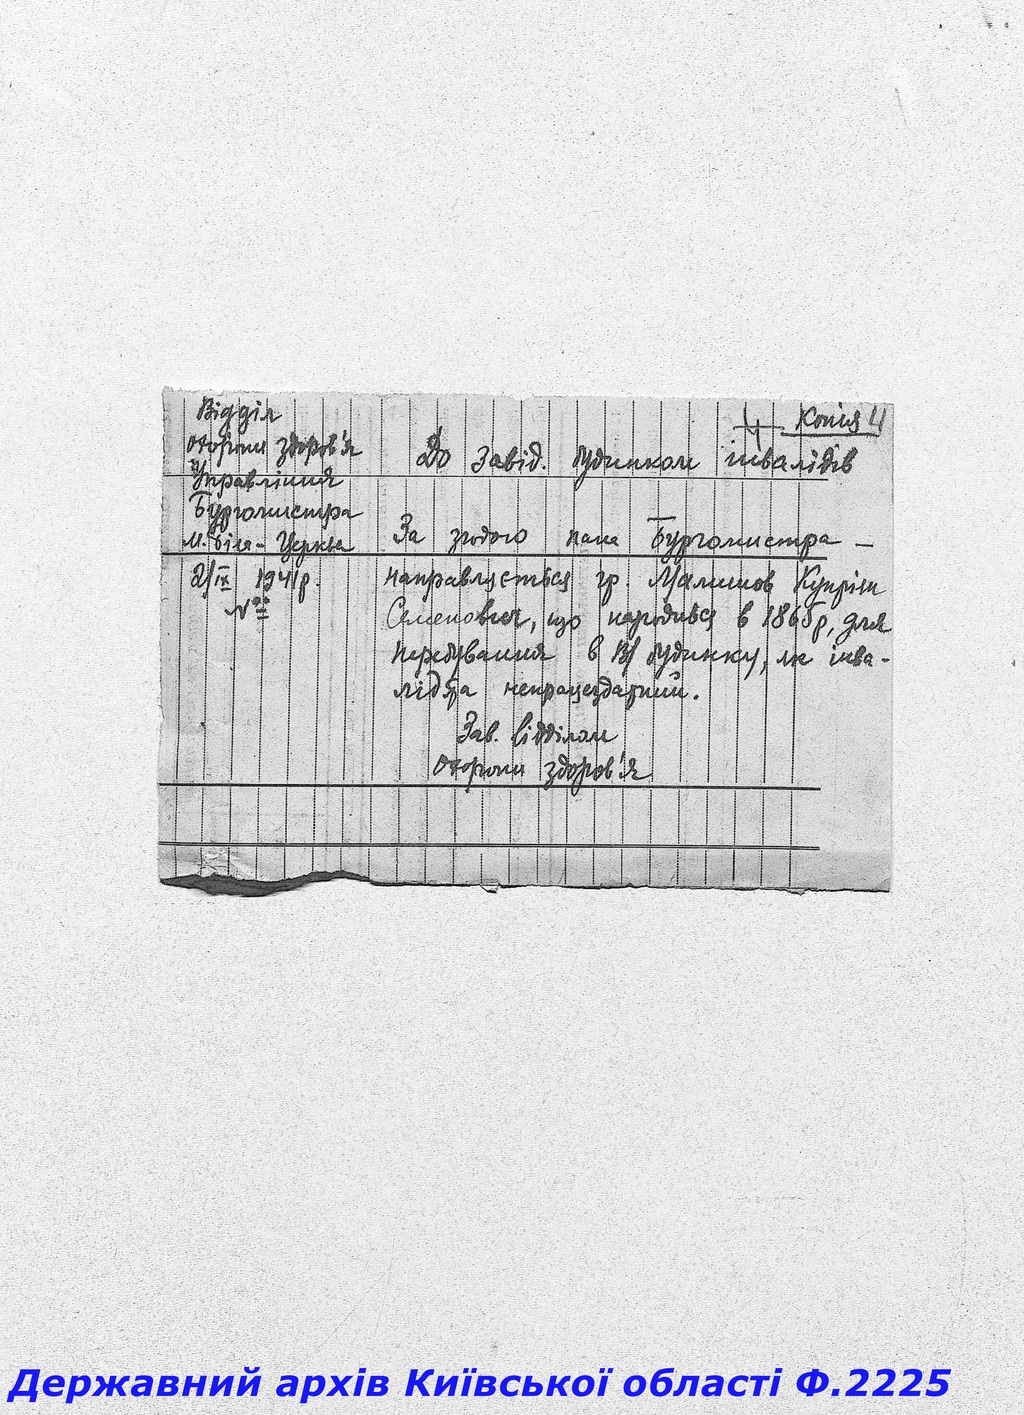 Копія 4
4
Відділ
охорони здоров'я
Управління
Бургомистра
м. Біла-Церква
2/IX 1941р.
№
До Завід. будинком інвалідів
За згодою пана Бургомистра —
направляється гр. Малишов Купріян
Семенович, що народився в 1865р, для
перебування в В/ будинку, як інва-
лід та непрацездатний.
Зав. відділом
Охорони здоров'я
Державний архів Київської області Ф.2225